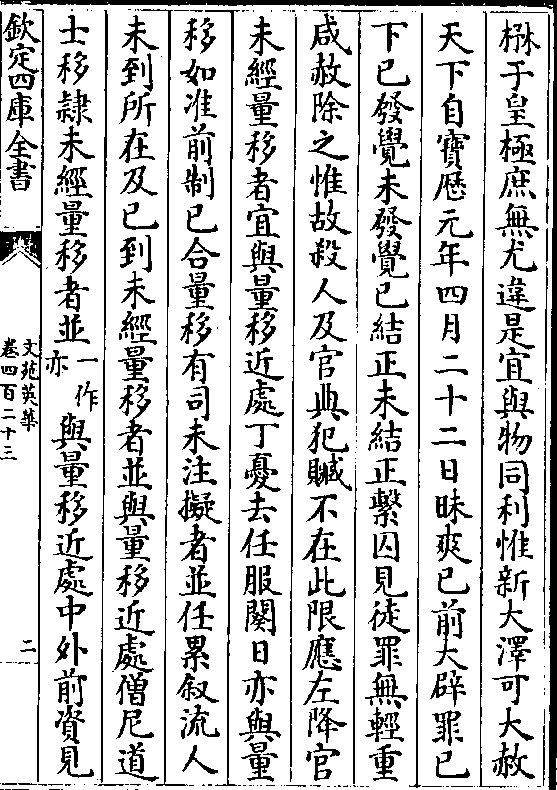 楙于皇極庶無尤違是宜與物同利惟新大澤可大赦
天下自寶歴元年四月二十二日昧爽已前大辟罪已
下已發覺未發覺已結正未結正繫囚見徒罪無輕重
咸赦除之惟故殺人及官典犯贓不在此限應左降官
未經量移者宜與量移近處丁憂去任服闋日亦與量
移如准前制已合量移有司未注擬者並任累叙流人
未到所在及已到未經量移者並與量移近處僧尼道
士移隷未經量移者並一作亦與量移近處中外前資見
欽定四庫全書
文苑英華
卷四百二十三
二